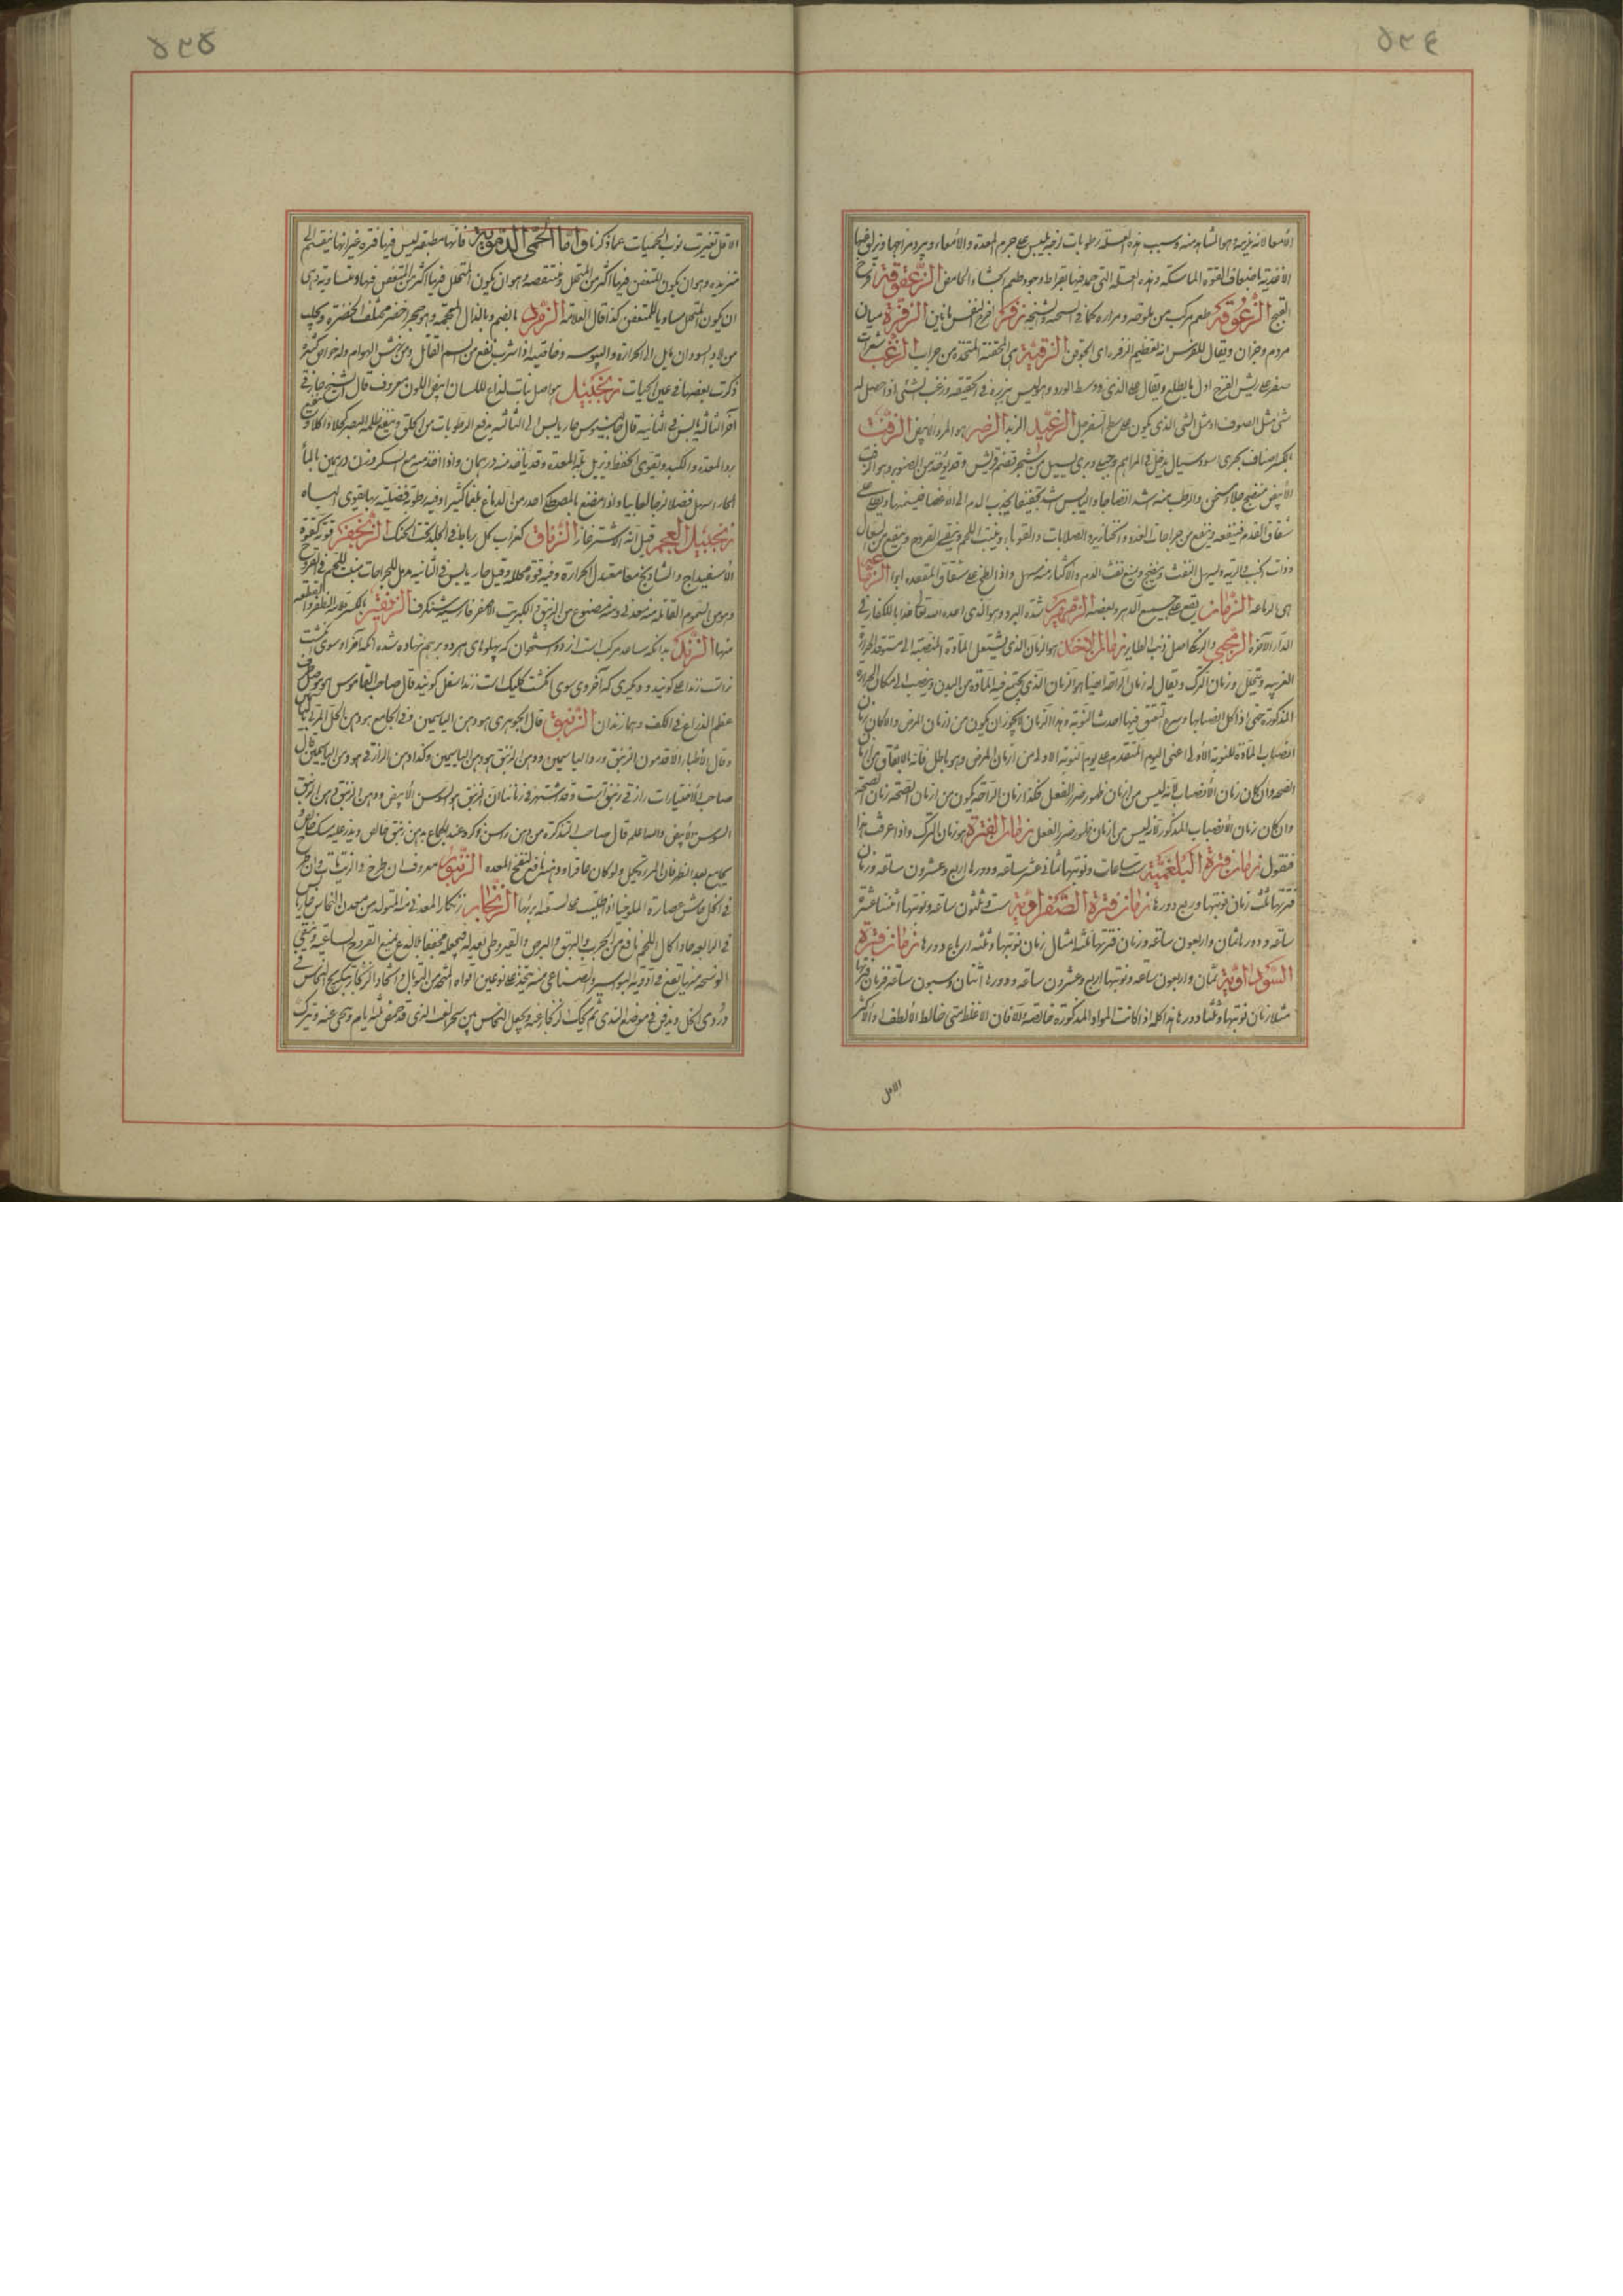 ٥٢٤
الأمعا لانه غريمة هو الشاهد منه وسبب هذه العلة رطوبات لزجة بلبس على جرم المعدة والأمعاء ويبرد مزاجها ويزلق فيها
الأغذية باضعاف القوة الماسكة وهذه العلة التى حمد فيها بقراط وجود طعم الجشاء الحامض الزعقوقة فرخ
القبج الزعوقة طعم مركب من ملوحة ومرارة كما فى السبخة والشيحة زفر اخرج النفس بانين الزفرة ميان
مردم وخزان ويقال للفرس انه لعظيم الزفرة اى الجوف الزقية هى المحقنة المتخذة من جراب الزغب شعرات
صفر على ريش الفرخ اول ما يطلع ويقال على الذى فى وسط الورد وهو ليس ببزر فى الحقيقة وزغب الشئ اذا حصل له
شئ مثل الصوف او مثل الشئ الذى يكون على سطح السفرجل الزغبد الزبد الزغبر هو المرو الأبيض الزفت
بالكسر اصناف بحرى اسود سيال يدخل فى المراهم وجبلى وبرى يسيل من شجر قضم قريش وقد يؤخذ من الصنوبر وهو الزفت
الأبيض منضج جلاء مسخن والرطب منه اشد انضاجا واليابس اشد تجفيفا يجذب الدم الى الاعضاء فيسمنها ويطلى على
شقاق القدم فينفعه وينفع من جراحات الغدد والخنازير والصلابات والقوباء وينبت اللحم وينقى القروح وينفع من السعال
وذات الجنب والرية ويسهل النفث وينضج ويمنع نفث الدم والاكثار منه يسهل واذا لطخ على شقاق المقعدة ابرأ الزماعة
هى الرماعة الزمان يقع على جميع الدهر وبعضه الزمهرير شدة البرد وهو الذى اعده الله تعالى عذابا للكفار فى
الدار الآخرة الزمجى والزمكى اصل ذنب الطاير زمان الاخذ هو الزمان الذى يشتعل المادة المنصبة الى مستوقد الحرارة
الغريبه وتحلل وزمان الترك ويقال له زمان الراحة ايضا هو الزمان الذى يجتمع فيه المادة من البدن وينصب الى مكان الحرارة
المذكورة حتى اذا كمل انصبابها وسرع تتعفن فيها احدث النوبة وهذا الزمان لا يجوز ان يكون من ازمان المرض والا كان زمان
انصباب المادة للنوبة الأولى اعنى اليوم المتقدم على يوم النوبة الاولى من ازمان المرض وهو باطل فانه بالاتفاق من ازمان
الصحه وان كان زمان الأنصباب لانه ليس من ازمان ظهور ضرر الفعل فكذا زمان الراحة يكون من ازمان الصحة زمان الصحة
وان كان زمان الأنصباب المذكور لانه ليس من ازمان ظهور ضرر الفعل زمان الفترة هو زمان الترك واذا عرفت هذا
فنقول زمان فترة البلغمية ست ساعات ونوبتها ثمانى عشر ساعة ودورها اربع وعشرون ساعة وزمان
فترتها ثلث زمان نوبتها وربع دورها زمان فترة الصفراوية ست وثلثون ساعة ونوبتها اثنتا عشر
ساعة ودورها ثمان واربعون ساعة وزمان فترتها ثلثة امثال زمان نوبتها وثلثة ارباع دورها زمان فترة
السوداوية ثمان واربعون ساعة ونوبتها اربع وعشرون ساعة ودورها اثنان وسبعون ساعة فزمان فترتها
مثلا زمان نوبتها وثلثا دورها هذا كله اذا كانت المواد المذكورة خالصة والا فان الاغلظ متى خالط الألطف او الأكثر
الاقل
٥٢٥
الاقل تغيرت نوب الحميات عما ذكرنا واما الحمى الدموية فانها مطبقة ليس فيها فترة غير انها ينقسم الى
متزيده وهو ان يكون المتعفن فيها اكثر من المتحلل ومتنقصة وهو ان يكون المتحلل فيها اكثر من المتعفن فيها ومتساوية وهى
ان يكون المتحلل مساويا للمتعفن كذا قال العلامة الزمرد بالضم وبالذال المعجمه وهو حجر اخضر مختلف الخضرة ويجلب
من بلاد السودان مايل الى الحرارة واليبوسه وخاصيته اذا شرب نفع من السم القاتل ومن نهش الهوام وله خواص كثيرة
ذكرت بعضها فى عين الحيات زنجبيل هو اصل نبات لذاع للسان ابيض اللون معروف قال الشيخ حار فى
آخر الثالثة يابس فى الثانيه قال جالينوس حار يابس فى الثالثة يدفع الرطوبات من الحلق وينفع ظلمة البصر كحلا واكلا وينفع
برد المعدة والكبد ويقوى الحفظ ويزيل بلة المعدة وقد يؤخذ منه درهمان واذا اخذ منه مع السكر وزن درهمين بالماء
الحار اسهل فضلا لزجا لعابيا واذا مضغ بالمصطكى احدر من الدماغ بلغما كثيرا وفيه رطوبة فضلية بها يقوى الباه
زنجبيل العجم قيل انه الاشترغاز الزناق كغراب كل رباط فى الجلدة تحت الحنك الزنجفر قوته كقوة
الأسفيداج والشاذنج معا معتدل الحرارة وفيه قوة محللة وقيل حار يابس فى الثانيه يدمل الجراحات وينبت اللحم فى القروح
وهو من السموم القاتلة منه معدنى ومنه مصنوع من الزيبق والكبريت الأصفر فارسيه شنكرف الزنقير بالكسر قلامة الظفر والقطعة
منها الزند بدانكه ساعد مركب است از دو استخوان كه پهلوهاى هر دو بر هم نهاده شده آنكه آخر او سوى انگشت
نر است زند اعلى گويند و ديگرى كه آخر وى سوى انگشت كليك است زند اسفل گويند قال صاحب القاموس هو موصل طرف
عظم الذراع فى الكف وهما زندان الزنبق قال الجوهرى هو دهن الياسمين وفى الجامع هو دهن الخل المربى بالياسمين
وقال الأطباء الاقدمون الزنبق ورد الياسمين ودهن الزنبق هو دهن الياسمين وكذا دهن الرازقى هو دهن الياسمين قال
صاحب الأختيارات رازقى زنبق است وقد اشتهر فى زماننا ان الزنبق هو السوسن الأبيض ودهن الزنبق دهن الزنبق
السوسن الأبيض والله اعلم قال صاحب التذكرة من دهن راس ذكره عند الجماع بدهن زنبق خالص ويذر عليه مسك خالص
يجامع بعد الطهر فان المراة تحبل ولو كان عاقرا ودهنه نافع لنفخ المعده الزنبور معروف ان طرح فى الزيت مات وان طرح
فى الخل عاش عصارة الملوخيا اذا طليت على لسعته ابرئها الزنجار زنكار المعدنى منه المتولد من معدن النحاس حار يابس
فى الرابعه حاد اكال اللحم نافع من الجرب والبهق والبرص والقيروطى يعدله فيجعله مجففا بلا لذع يمنع القروح الساعية وينقى
الوسخة منها ينفع فى ادوية البواسير والصناعى منه يتخذ على نوعين
ودردى الخل ويدفن فى موضع الندى ثم يحك الزنجار عنه